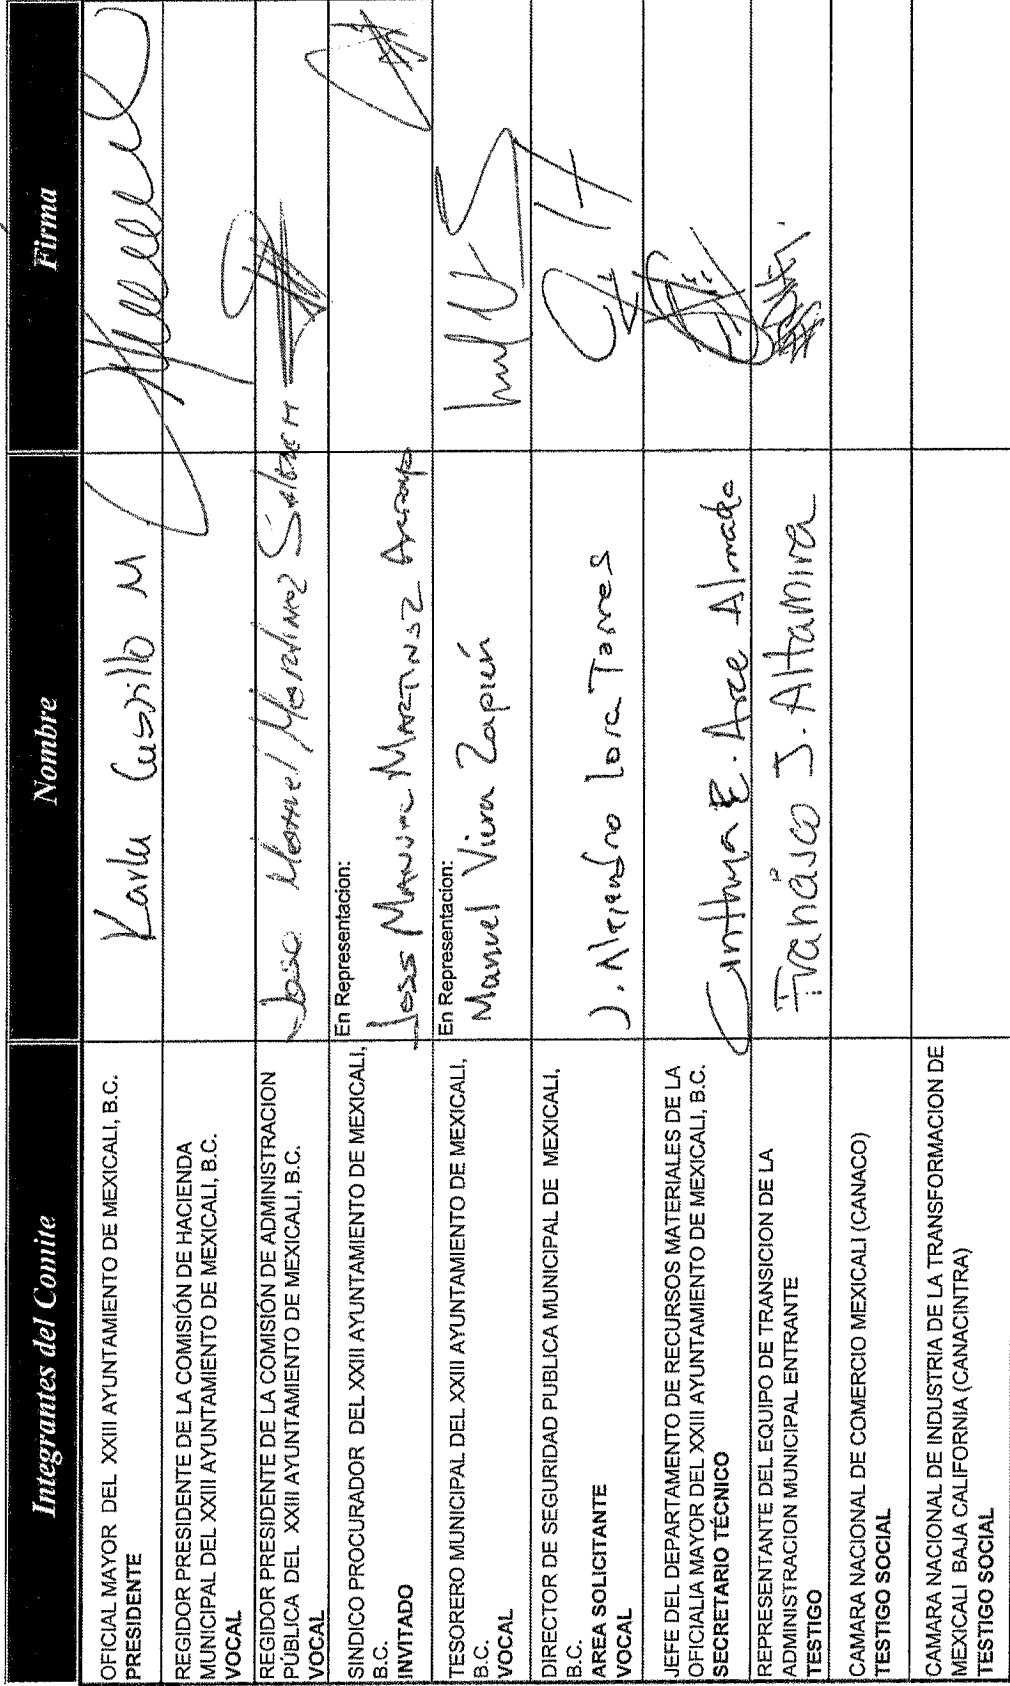 Integrantes del Comite	Nombre	Firma
OFICIAL MAYOR DEL XXIII AYUNTAMIENTO DE MEXICALI, B.C.
PRESIDENTE
Karla Castillo M
REGIDOR PRESIDENTE DE LA COMISIÓN DE HACIENDA
MUNICIPAL DEL XXIII AYUNTAMIENTO DE MEXICALI, B.C.
VOCAL
REGIDOR PRESIDENTE DE LA COMISIÓN DE ADMINISTRACION
PÚBLICA DEL XXIII AYUNTAMIENTO DE MEXICALI, B.C.
VOCAL
Jose Manuel Martinez
SINDICO PROCURADOR DEL XXIII AYUNTAMIENTO DE MEXICALI,
B.C.
INVITADO
En Representacion:
Jose Manuel Martinez
TESORERO MUNICIPAL DEL XXIII AYUNTAMIENTO DE MEXICALI,
B.C.
VOCAL
En Representacion:
Manuel Viera Zapién
DIRECTOR DE SEGURIDAD PUBLICA MUNICIPAL DE MEXICALI,
B.C.
AREA SOLICITANTE
VOCAL
J. Alejandro Lora Torres
JEFE DEL DEPARTAMENTO DE RECURSOS MATERIALES DE LA
OFICIALIA MAYOR DEL XXIII AYUNTAMIENTO DE MEXICALI, B.C.
SECRETARIO TÉCNICO
Cinthya E. Arce Almada
REPRESENTANTE DEL EQUIPO DE TRANSICION DE LA
ADMINISTRACION MUNICIPAL ENTRANTE
TESTIGO
Francisco J. Altamira
CAMARA NACIONAL DE COMERCIO MEXICALI (CANACO)
TESTIGO SOCIAL
CAMARA NACIONAL DE INDUSTRIA DE LA TRANSFORMACION DE
MEXICALI BAJA CALIFORNIA (CANACINTRA)
TESTIGO SOCIAL